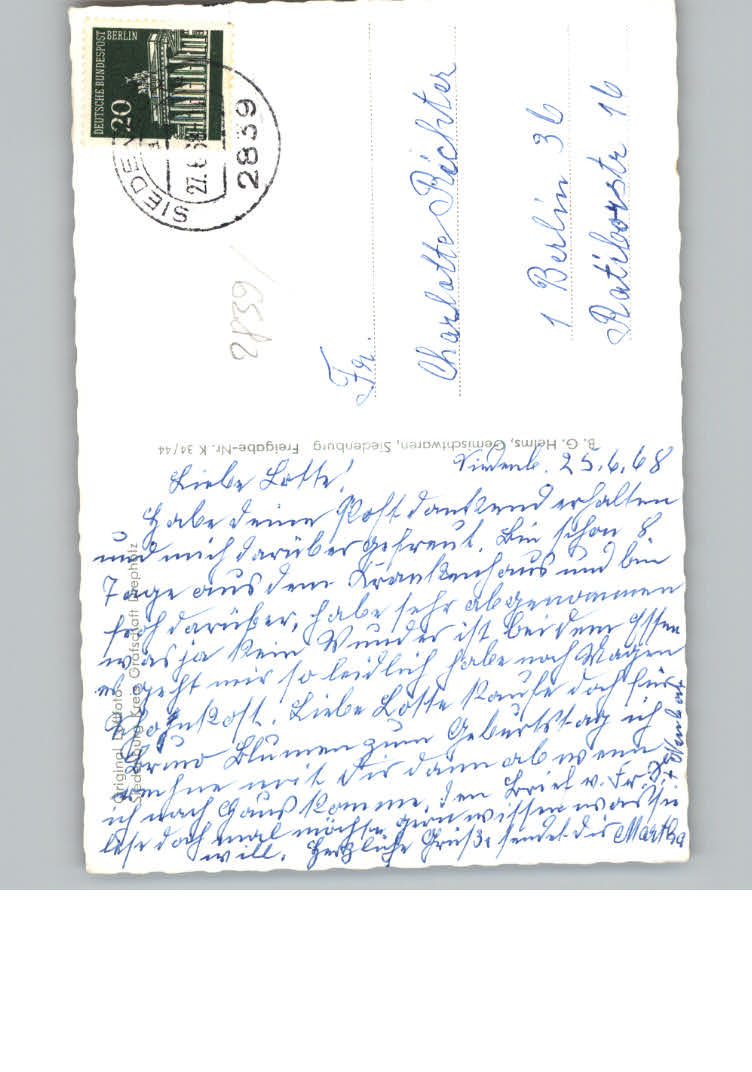 DEUTSCHE BUNDESPOST BERLIN
20
27. 6. 68
2839
2839
Fr.
Charlotte Richter
1 Berlin 36
Ratiborstr 16
B. G. Helms, Gemischtwaren, Siedenburg Freigabe-Nr. K 34/44
Original Luftfoto
Siedenburg Kreis Grafschaft Diepholz
Siedenb. 25.6.68
Liebe Lotte!
Habe deine Post dankend erhalten
und mich darüber gefreut. Bin schon 8
Tage aus dem Krankenhaus und bin
froh darüber, habe sehr abgenommen
was ja kein Wunder ist bei dem Essen
es geht mir so leidlich habe noch Magen
Schonkost. Liebe Lotte kaufe doch für
Bruno Blumen zum Geburtstag ich
rechne mit dir dann ab wenn
ich nach Haus komme, den Brief v. Fr.
lese doch mal möchte gern wissen was sie
will. Herzliche Grüße sendet dir Martha